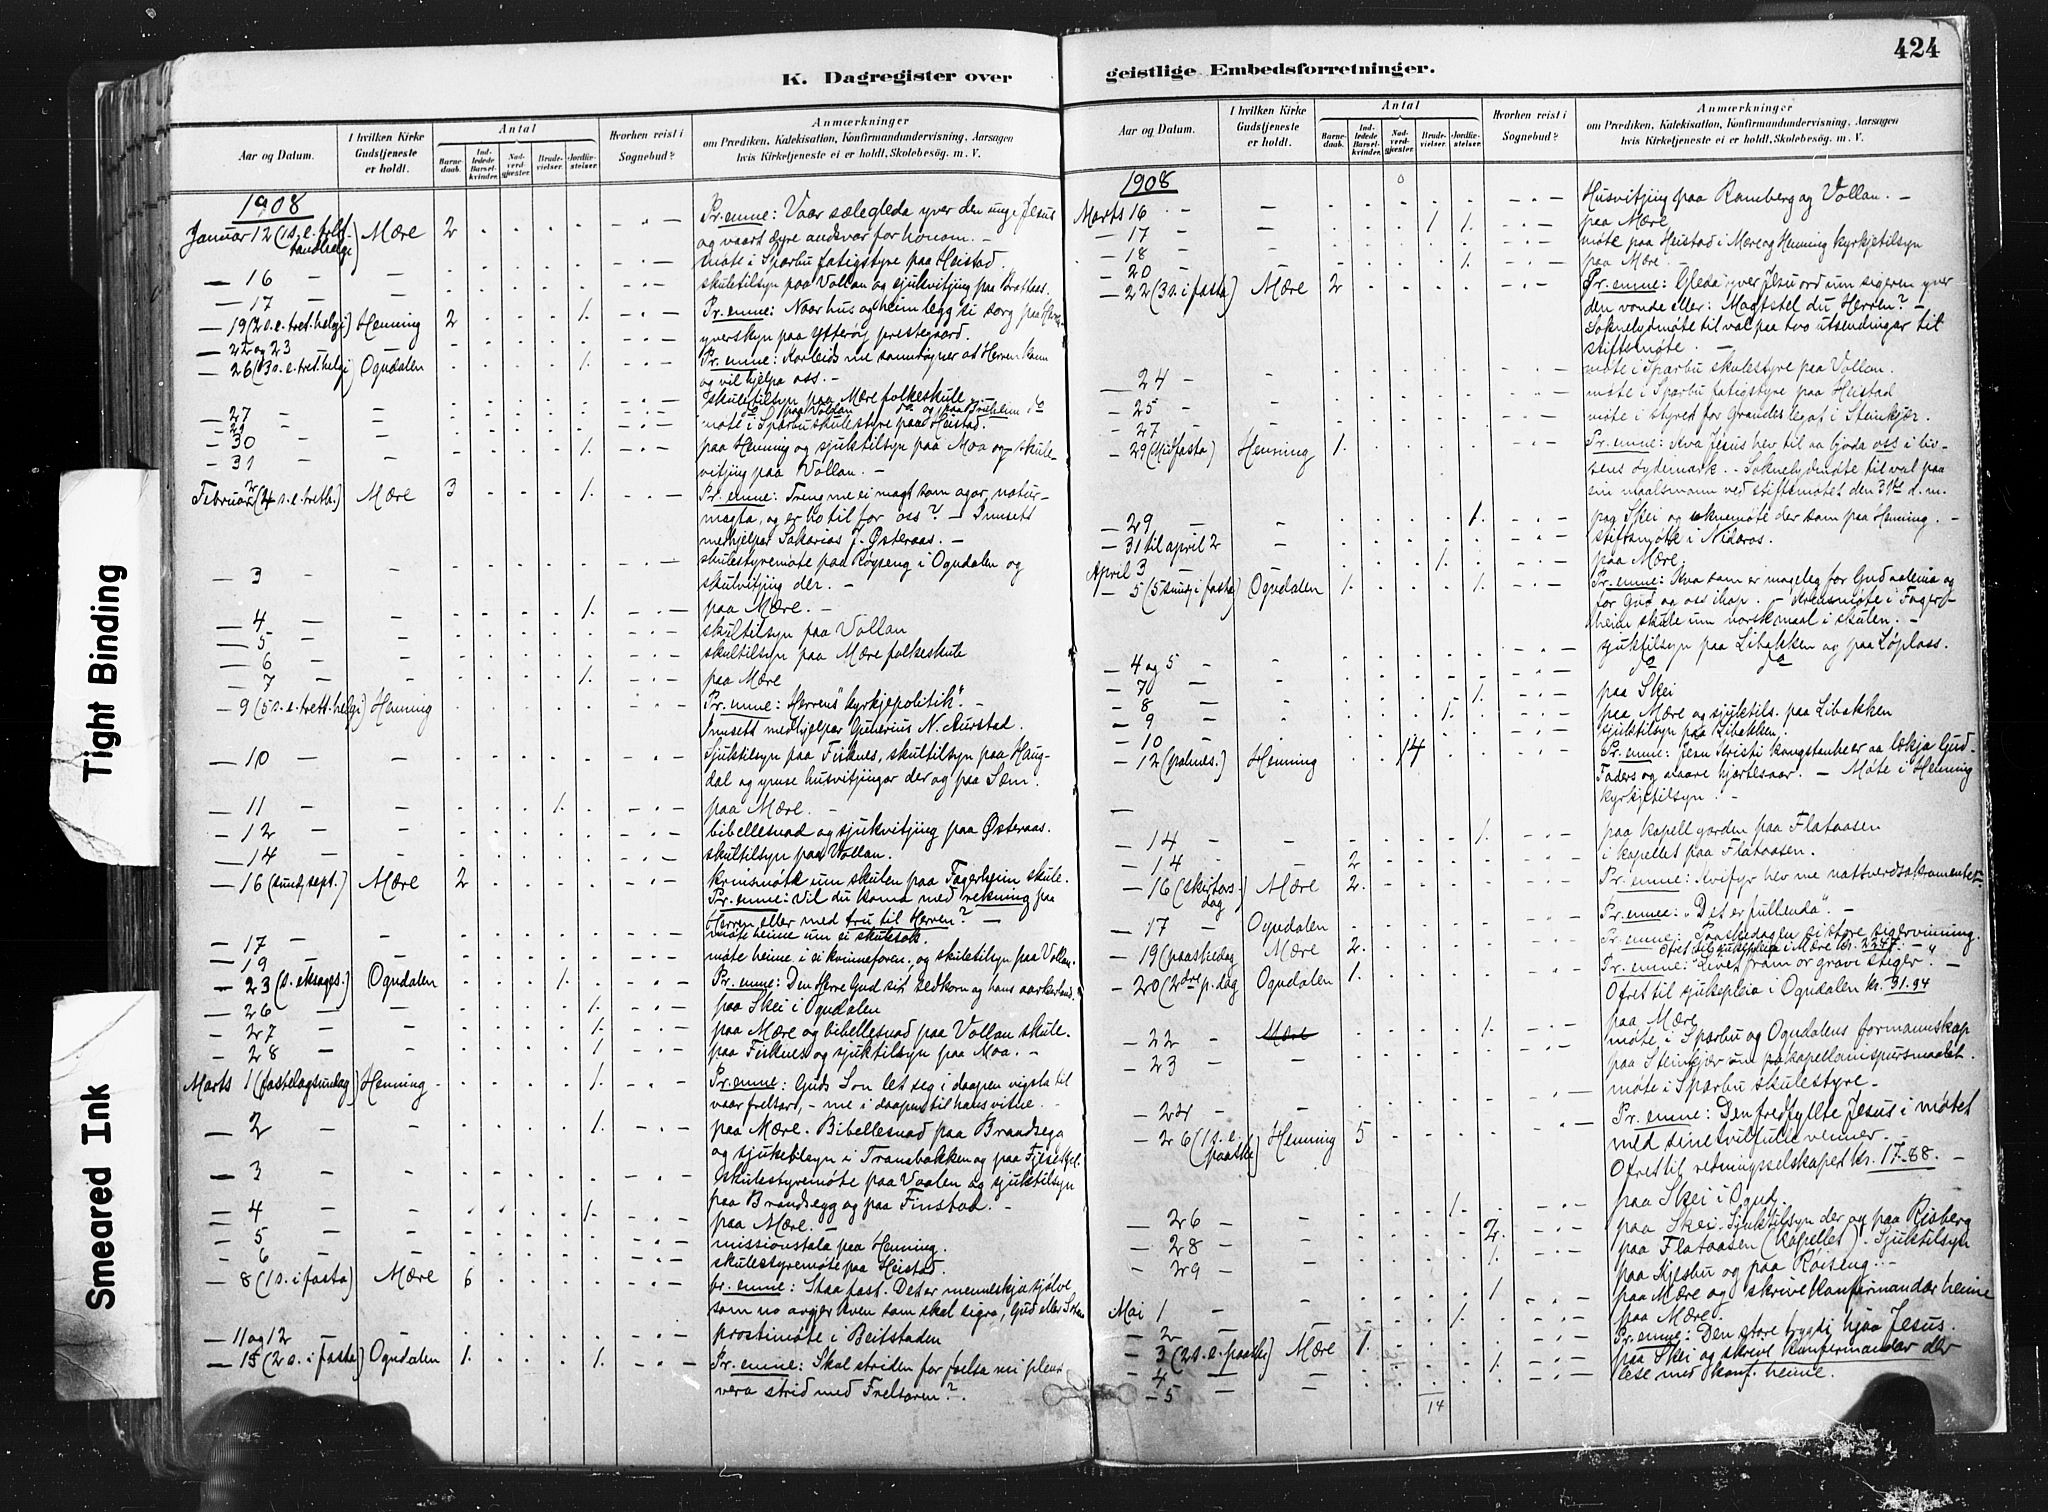 424
K. Dagregister over geistlige Embedsforretninger.
Aar og Datum.
I hvilken Kirke Gudstjeneste er holdt.
Antal
Barnedaab.
Indledede Barselkvinder.
Nadverdgjæster.
Brudevielser.
Jordfæstelser.
Hvorhen reist i Sognebud?
Anmærkninger
om Prædiken, Katekisation, Konfirmandundervisning, Aarsagen
hvis Kirketjeneste ei er holdt, Skolebesøg. m. V.
1908
Januar 12 (1 s. e. Mære 2 Pr. emne: Vaar sæleglede yver den unge Jesus
og vaart dyre andsvar for honom. —
— 16 møte i Sparbu fatigstyre paa Heistad.
— 17 skuletilsyn paa Vollan og sjukvitjing paa
— 19 (2 s. e. tret. helgi) Henning 2 1. Pr. emne: Naar hus og heim legg si sorg paa
— 22 og 23 yverskyn paa Ytterøy prestegaard.
— 26 (3 s. e. tret. helgi) Ogndalen 1. Pr. emne: Arbeids me at Herren kann
og vil hjelpa oss. —
— 27 skuletilsyn paa Mære folkeskule
— 29 do paa Vollan do og paa do
— 30 møte i Sparbu skulestyre paa Heistad.
— 31 1. paa Henning og sjuktilsyn paa Moa og skule-
vitjing paa Vollan. —
Februar 2 (4 s. e. tretth.) Mære 3 1. Pr. emne: Treng me ei magt som agar natur-
magta, og er ho til for oss? — Innsett
medhjelpar Sakarias J. Østeraas. —
— 3 skulestyremøte paa Røyseng i Ogndalen og
skulvitjing der. —
— 4 1. paa Mære. —
— 5 skultilsyn paa Vollan
— 6 skultilsyn paa Mære folkeskule
— 7 1. paa Mære
— 9 (5 s. e. trett. helgi) Henning Pr. emne: Herrens "kyrkjepolitik".
Innsett medhjelpar N. Aurstad.
— 10 Sjuktilsyn paa Fisknes, skultilsyn paa Haug-
dal og ymse husvitjingar der og paa Sem.
— 11 1. paa Mære. —
— 12 bibellesnad og sjukvitjing paa Østeraas.
— 14 skultilsyn paa Vollan.
— 16 (sund. sept.) Mære 2 krinsmøte um skulen paa Fagerheim skule.
Pr. emne: Vil du koma med rekning paa
Herren eller med tru til Herren? —
— 17 møte heime um ei skulsak.
— 19 møte heime i ei kvinneforen. og skuletilsyn paa Vollan.
— 23 (s. seksages.) Ogndalen 1. Pr. emne: Den Herre Gud sit sedkorn og hans aakerland.
— 26 1. paa Skei i Ogndalen
— 27 1. paa Mære og bibellesnad paa Vollan skule.
— 28 1. paa Fisknes og sjuktilsyn paa Moa. —
Marts 1 (fastelagsundag) Henning 1. Pr. emne: Guds Son let seg i daapen vigsla til
vaar frelsar, — me i daapen til hans vitne. —
— 2 1. paa Mære. Bibellesnad paa Brandsegg
og sjuketilsyn i Transbakken og paa
— 3 Skulestyremøte paa Vaalen og sjuktilsyn
paa Brandsegg og paa Finstad. —
— 4 1. paa Mære. —
— 5 missionstala paa Henning.
— 6 skulestyremøte paa Heistad.
— 8 (1 s. i fasta) Mære 6 Pr. emne: Staa fast. Det er menneskja sjølve
som no avgjer kven som skal sigra, Gud eller Satan
— 11 og 12 prostimøte i Beitstaden
— 15 (2 s. i fasta) Ogndalen 1. 1. Pr. emne: Skal striden for
vera strid med Frelsaren?
1908
Marts 16 Husvitjing paa Ramberg og Vollan. —
— 17 1 1. paa Mære
— 18 møte paa Heistad i Mære og Henning kyrkjetilsyn
— 20 1. paa Mære. —
— 22 (3 s. i fasta) Mære 2 Pr. emne: Gleda yver Jesu ord um sigeren yver
den vonde eller: Magtstel du Herren? —
Soknelydmøte til val paa tvo utsendingar til
stiftsmøte. —
— 24 møte i Sparbu skulestyre paa Vollan.
— 25 møte i Sparbu fatigstyre paa Heistad
— 27 møte i styret for Grandes legat i Steinkjær.
— 29 (Midfasta) Henning 1. Pr. emne: Kva Jesus hev til aa bjoda oss i liv-
sens øydemark. — Soknelydmøte til val paa
ein maalsmann ved stiftsmøtet den 31te d. m.
— 29 1. paa Skei og soknemøte der som paa Henning. —
— 31 til april 2 stiftsmøte i Nidaros.
April 3 1. paa Mære.
— 5 (5 sund. i fasta) Ogndalen 1. 1. Pr. emne: Kva som er mogeleg for Gud aaleina og
for Gud og oss ihop. — Krinsmøte i Fager-
heim skule um norskmaal i skulen. —
— 4 og 5 sjuktilsyn paa Libakken og paa Løplass.
— 7 do do
— 8 1. paa Skei
— 9 1. paa Mære og sjuktils. paa Libakken
— 10 sjuktilsyn paa Libakken.
— 12 (palmes.) Henning 14 Pr. emne: Jesu Kristi kongstanke er aa lækja Gud-
Faders og vaare hjartesaar. — Møte i Henning
kyrkjetilsyn. —
— 14 1. paa kapellgarden paa Flataasen
— 14 2 i kapellet paa Flataasen.
— 16 (skirtorsdag) Mære 2. Pr. emne: Kvifyr hev me nattverdsakramentet
— 17 Ogndalen Pr. emne: "Det er fullenda". —
— 19 (paaskedag Mære 2. Pr. emne: Paaskedagen ei store sigervinning.
Ofret til sjukepleia i Mære kr. 2247. —
— 20 (2dre p. dag Ogndalen 1. Pr. emne: "Livet fram or gravi stiger". —
Ofret til sjukepleia i Ogndalen kr. 31.94
— 22 Mære 1. paa Mære
— 23 møte i Sparbu og Ogndalens formannskap
paa Steinkjer um pskapellanispursmaalet.
— 24 møte i Sparbu skulestyre. —
— 26 (1 s. e. paaske) Henning 5 Pr. emne: Den fredfyllte Jesus i møtet
med sine tvilfulle venner. —
Ofret til redningsselskapet kr. 17.88. —
— 26 1. paa Skei i Ognd.
— 28 2. paa Skei. Sjuktilsyn der og paa Risberg
— 29 1. paa Flataasen (kapellet). Sjuktilsyn
paa Kjesbu og paa Røiseng. —
Mai 1 1 paa Mære og skrive konfirmandar heime
— 2 1. paa Mære.
— 3 (2 s. e. paaske) Mære 1. Pr. emne: Den store trygd hjaa Jesus.
— 4 1. paa Skei og skrive konfirmandar der
— 5 lese med konf. heime.
14
Tight Binding
Smeared Ink